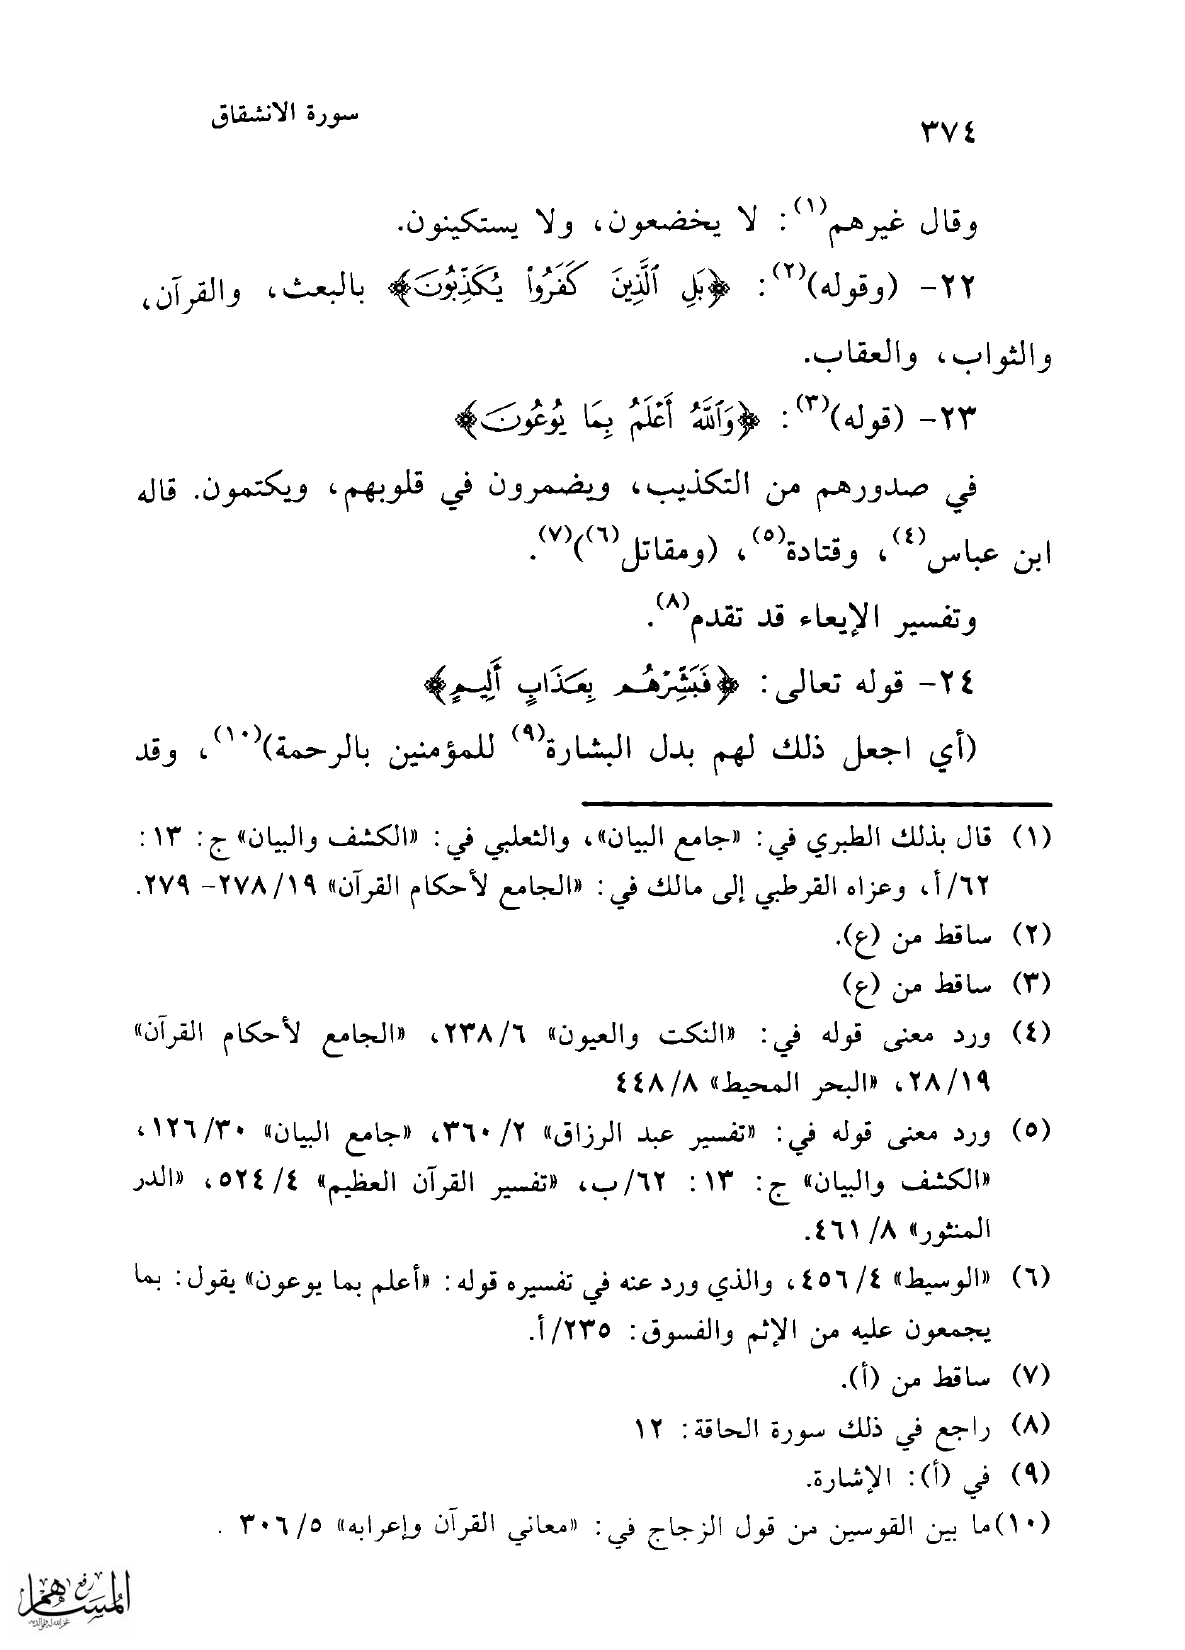 سورة الانشقاق
٣٧٤
وقال غيرهم(١): لا يخضعون، ولا يستكينون.
٢٢- (وقوله)(٢): ﴿بَلِ ٱلَّذِينَ كَفَرُواْ يُكَذِّبُونَ﴾ بالبعث، والقرآن،
والثواب، والعقاب.
٢٣- (قوله)(٣): ﴿وَٱللَّهُ أَعۡلَمُ بِمَا يُوعُونَ﴾
في صدورهم من التكذيب، ويضمرون في قلوبهم، ويكتمون. قاله
ابن عباس(٤)، وقتادة(٥)، (ومقاتل(٦))(٧).
وتفسير الإيعاء قد تقدم(٨).
٢٤- قوله تعالى: ﴿فَبَشِّرۡهُم بِعَذَابٍ أَلِيمٍ﴾
(أي اجعل ذلك لهم بدل البشارة(٩) للمؤمنين بالرحمة)(١٠)، وقد
(١) قال بذلك الطبري في: «جامع البيان»، والثعلبي في: «الكشف والبيان» ج: ١٣:
٦٢/أ، وعزاه القرطبي إلى مالك في: «الجامع لأحكام القرآن» ١٩/٢٧٨- ٢٧٩.
(٢) ساقط من (ع).
(٣) ساقط من (ع)
(٤) ورد معنى قوله في: «النكت والعيون» ٦/٢٣٨، «الجامع لأحكام القرآن»
١٩/٢٨، «البحر المحيط» ٨/٤٤٨
(٥) ورد معنى قوله في: «تفسير عبد الرزاق» ٢/٣٦٠، «جامع البيان» ٣٠/١٢٦،
«الكشف والبيان» ج: ١٣: ٦٢/ب، «تفسير القرآن العظيم» ٤/٥٢٤، «الدر
المنثور» ٨/٤٦١.
(٦) «الوسيط» ٤/٤٥٦، والذي ورد عنه في تفسيره قوله: «أعلم بما يوعون» يقول: بما
يجمعون عليه من الإثم والفسوق: ٢٣٥/أ.
(٧) ساقط من (أ).
(٨) راجع في ذلك سورة الحاقة: ١٢
(٩) في (أ): الإشارة.
(١٠)ما بين القوسين من قول الزجاج في: «معاني القرآن وإعرابه» ٥/٣٠٦ .
رفع
المساهم